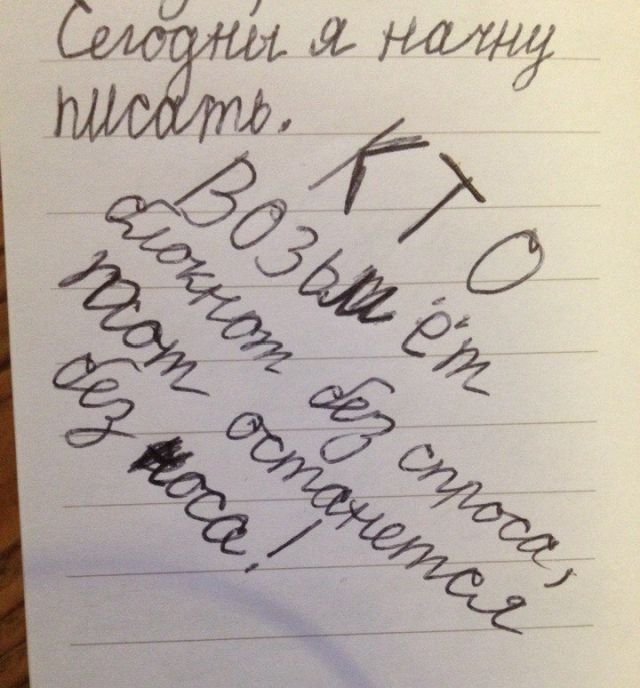 Сегодны я начну
писать.
КТО
Возьмёт
блокнот без спроса,
тот останется
без носа!